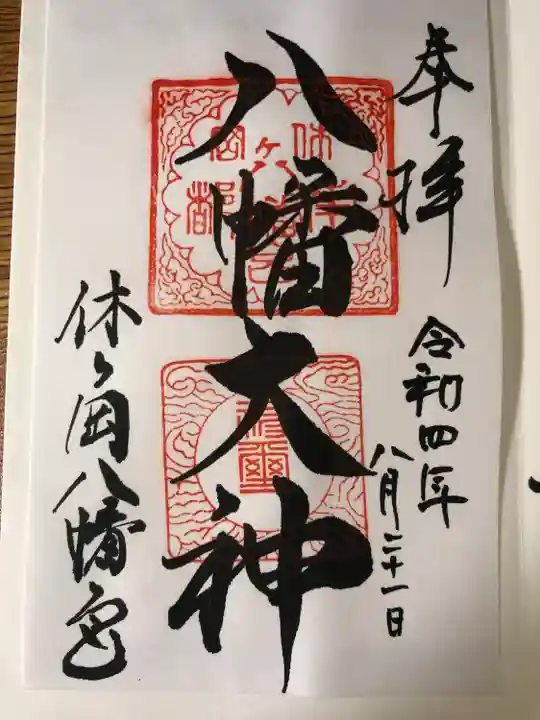 奉拝
令和四年
八月二十一日
八幡大神
休ヶ岡八幡宮